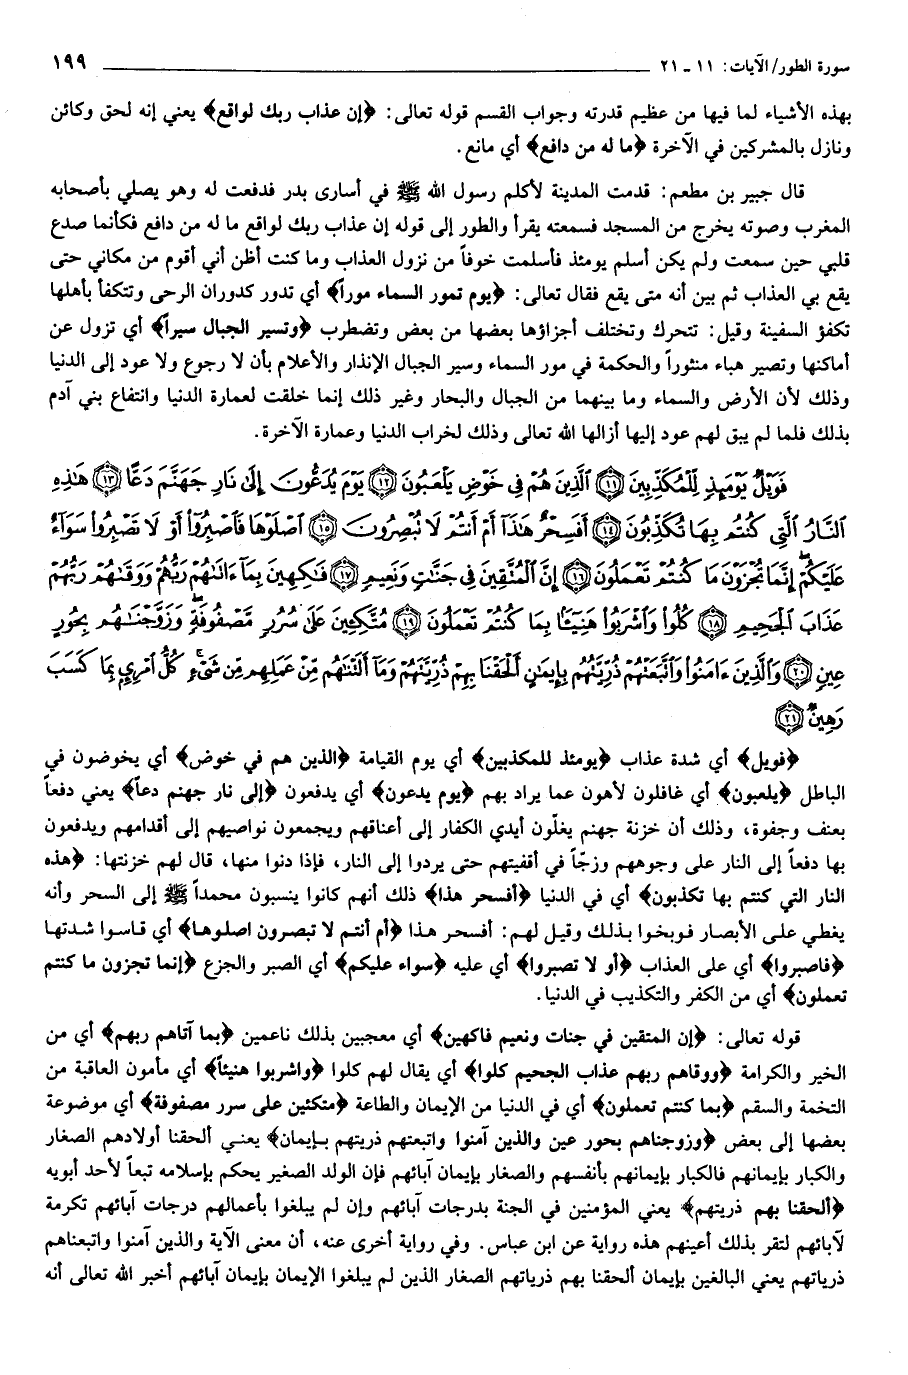 سورة الطور/ الآيات: ١١ ـ ٢١ ١٩٩
بهذه الأشياء لما فيها من عظيم قدرته وجواب القسم قوله تعالى: ﴿إن عذاب ربك لواقع﴾ يعني إنه لحق وكائن
ونازل بالمشركين في الآخرة ﴿ما له من دافع﴾ أي مانع.
قال جبير بن مطعم: قدمت المدينة لأكلم رسول الله ﷺ في أسارى بدر فدفعت له وهو يصلي بأصحابه
المغرب وصوته يخرج من المسجد فسمعته يقرأ والطور إلى قوله إن عذاب ربك لواقع ما له من دافع فكأنما صدع
قلبي حين سمعت ولم يكن أسلم يومئذ فأسلمت خوفاً من نزول العذاب وما كنت أظن أني أقوم من مكاني حتى
يقع بي العذاب ثم بين أنه متى يقع فقال تعالى: ﴿يوم تمور السماء موراً﴾ أي تدور كدوران الرحى وتتكفأ بأهلها
تكفؤ السفينة وقيل: تتحرك وتختلف أجزاؤها بعضها من بعض وتضطرب ﴿وتسير الجبال سيراً﴾ أي تزول عن
أماكنها وتصير هباء منثوراً والحكمة في مور السماء وسير الجبال الإنذار والأعلام بأن لا رجوع ولا عود إلى الدنيا
وذلك لأن الأرض والسماء وما بينهما من الجبال والبحار وغير ذلك إنما خلقت لعمارة الدنيا وانتفاع بني آدم
بذلك فلما لم يبق لهم عود إليها أزالها الله تعالى وذلك لخراب الدنيا وعمارة الآخرة.
فَوَيْلٌ يَوْمَئِذٍ لِلْمُكَذِّبِينَ ﴿١١﴾ ٱلَّذِينَ هُمْ فِى خَوْضٍ يَلْعَبُونَ ﴿١٢﴾ يَوْمَ يُدَعُّونَ إِلَىٰ نَارِ جَهَنَّمَ دَعًّا ﴿١٣﴾ هَٰذِهِ
ٱلنَّارُ ٱلَّتِى كُنتُم بِهَا تُكَذِّبُونَ ﴿١٤﴾ أَفَسِحْرٌ هَٰذَآ أَمْ أَنتُمْ لَا تُبْصِرُونَ ﴿١٥﴾ ٱصْلَوْهَا فَٱصْبِرُوٓا۟ أَوْ لَا تَصْبِرُوا۟ سَوَآءٌ
عَلَيْكُمْ ۖ إِنَّمَا تُجْزَوْنَ مَا كُنتُمْ تَعْمَلُونَ ﴿١٦﴾ إِنَّ ٱلْمُتَّقِينَ فِى جَنَّٰتٍ وَنَعِيمٍ ﴿١٧﴾ فَٰكِهِينَ بِمَآ ءَاتَىٰهُمْ رَبُّهُمْ وَوَقَىٰهُمْ رَبُّهُمْ
عَذَابَ ٱلْجَحِيمِ ﴿١٨﴾ كُلُوا۟ وَٱشْرَبُوا۟ هَنِيٓـًٔۢا بِمَا كُنتُمْ تَعْمَلُونَ ﴿١٩﴾ مُتَّكِـِٔينَ عَلَىٰ سُرُرٍ مَّصْفُوفَةٍ ۖ وَزَوَّجْنَٰهُم بِحُورٍ
عِينٍ ﴿٢٠﴾ وَٱلَّذِينَ ءَامَنُوا۟ وَٱتَّبَعَتْهُمْ ذُرِّيَّتُهُم بِإِيمَٰنٍ أَلْحَقْنَا بِهِمْ ذُرِّيَّتَهُمْ وَمَآ أَلَتْنَٰهُم مِّنْ عَمَلِهِم مِّن شَىْءٍ ۚ كُلُّ ٱمْرِئٍۭ بِمَا كَسَبَ
رَهِينٌ ﴿٢١﴾
﴿فويل﴾ أي شدة عذاب ﴿يومئذ للمكذبين﴾ أي يوم القيامة ﴿الذين هم في خوض﴾ أي يخوضون في
الباطل ﴿يلعبون﴾ أي غافلون لأهون عما يراد بهم ﴿يوم يدعون﴾ أي يدفعون ﴿إلى نار جهنم دعاً﴾ يعني دفعاً
بعنف وجفوة، وذلك أن خزنة جهنم يغلّون أيدي الكفار إلى أعناقهم ويجمعون نواصيهم إلى أقدامهم ويدفعون
بها دفعاً إلى النار على وجوههم وزجّاً في أقفيتهم حتى يردوا إلى النار، فإذا دنوا منها، قال لهم خزنتها: ﴿هذه
النار التي كنتم بها تكذبون﴾ أي في الدنيا ﴿أفسحر هذا﴾ ذلك أنهم كانوا ينسبون محمداً ﷺ إلى السحر وأنه
يغطي على الأبصار فوبخوا بذلك وقيل لهم: أفسحر هذا ﴿أم أنتم لا تبصرون اصلوها﴾ أي قاسوا شدتها
﴿فاصبروا﴾ أي على العذاب ﴿أو لا تصبروا﴾ أي عليه ﴿سواء عليكم﴾ أي الصبر والجزع ﴿إنما تجزون ما كنتم
تعملون﴾ أي من الكفر والتكذيب في الدنيا.
قوله تعالى: ﴿إن المتقين في جنات ونعيم فاكهين﴾ أي معجبين بذلك ناعمين ﴿بما آتاهم ربهم﴾ أي من
الخير والكرامة ﴿ووقاهم ربهم عذاب الجحيم كلوا﴾ أي يقال لهم كلوا ﴿واشربوا هنيئاً﴾ أي مأمون العاقبة من
التخمة والسقم ﴿بما كنتم تعملون﴾ أي في الدنيا من الإيمان والطاعة ﴿متكئين على سرر مصفوفة﴾ أي موضوعة
بعضها إلى بعض ﴿وزوجناهم بحور عين والذين آمنوا واتبعتهم ذريتهم بإيمان﴾ يعني ألحقنا أولادهم الصغار
والكبار بإيمانهم فالكبار بإيمانهم بأنفسهم والصغار بإيمان آبائهم فإن الولد الصغير يحكم بإسلامه تبعاً لأحد أبويه
﴿ألحقنا بهم ذريتهم﴾ يعني المؤمنين في الجنة بدرجات آبائهم وإن لم يبلغوا بأعمالهم درجات آبائهم تكرمة
لآبائهم لتقر بذلك أعينهم هذه رواية عن ابن عباس. وفي رواية أخرى عنه، أن معنى الآية والذين آمنوا واتبعناهم
ذرياتهم يعني البالغين بإيمان ألحقنا بهم ذرياتهم الصغار الذين لم يبلغوا الإيمان بإيمان آبائهم أخبر الله تعالى أنه